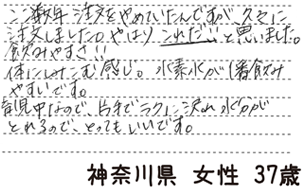 ここ数年注文をやめていたんですが、久々に
注文しました。やはり、これだ!!と思いました。
飲みやすさ!!
体にしみこむ感じ。水素水が1番飲み
やすいです。
育児中なので、片手でラクに沢山水分が
とれるので、とってもいいです。
神奈川県 女性 37歳